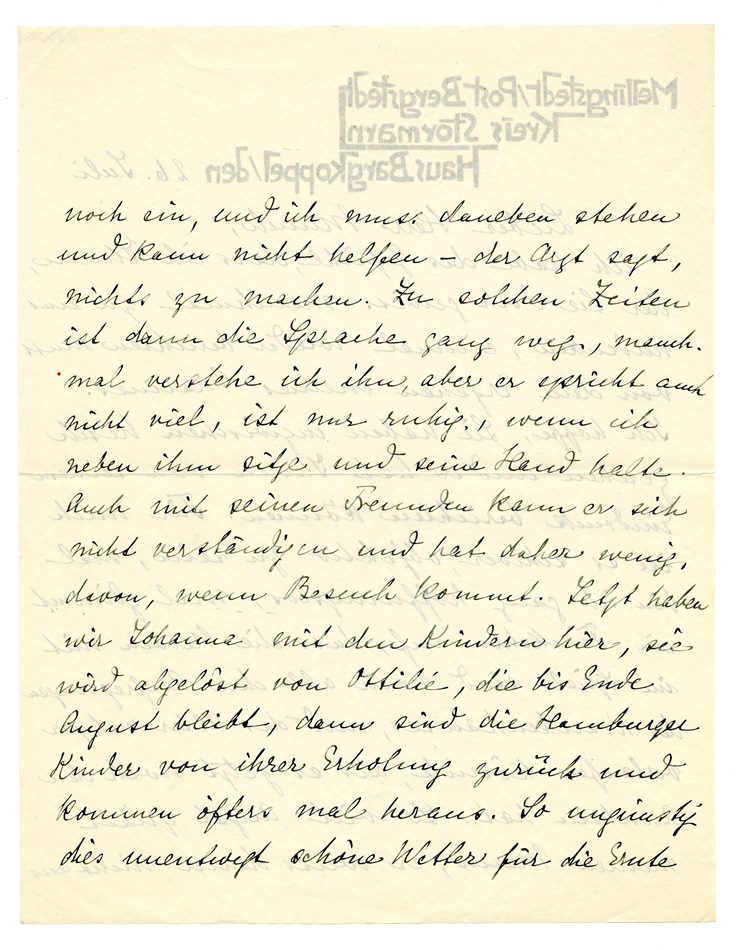 Mellingstedt/Post Bergstedt
Kreis Stormarn
Haus Bargkoppel/den 26. Juli
noch ein, und ich muss daneben stehen
und kann nicht helfen – der Arzt sagt,
nichts zu machen. Zu solchen Zeiten
ist dann die Sprache ganz weg., manch-
mal verstehe ich ihn, aber er spricht auch
nicht viel, ist nur ruhig., wenn ich
neben ihm sitze und seine Hand halte.
Auch mit seinen Freunden kann er sich
nicht verständigen und hat daher wenig,
davon, wenn Besuch kommt. Jetzt haben
wir Johanna mit den Kindern hier, sie
wird abgelöst von Ottilie, die bis Ende
August bleibt, dann sind die Hamburger
Kinder von ihrer Erholung zurück und
kommen öfters mal heraus. So ungünstig
dies unentwegt schöne Wetter für die Ernte